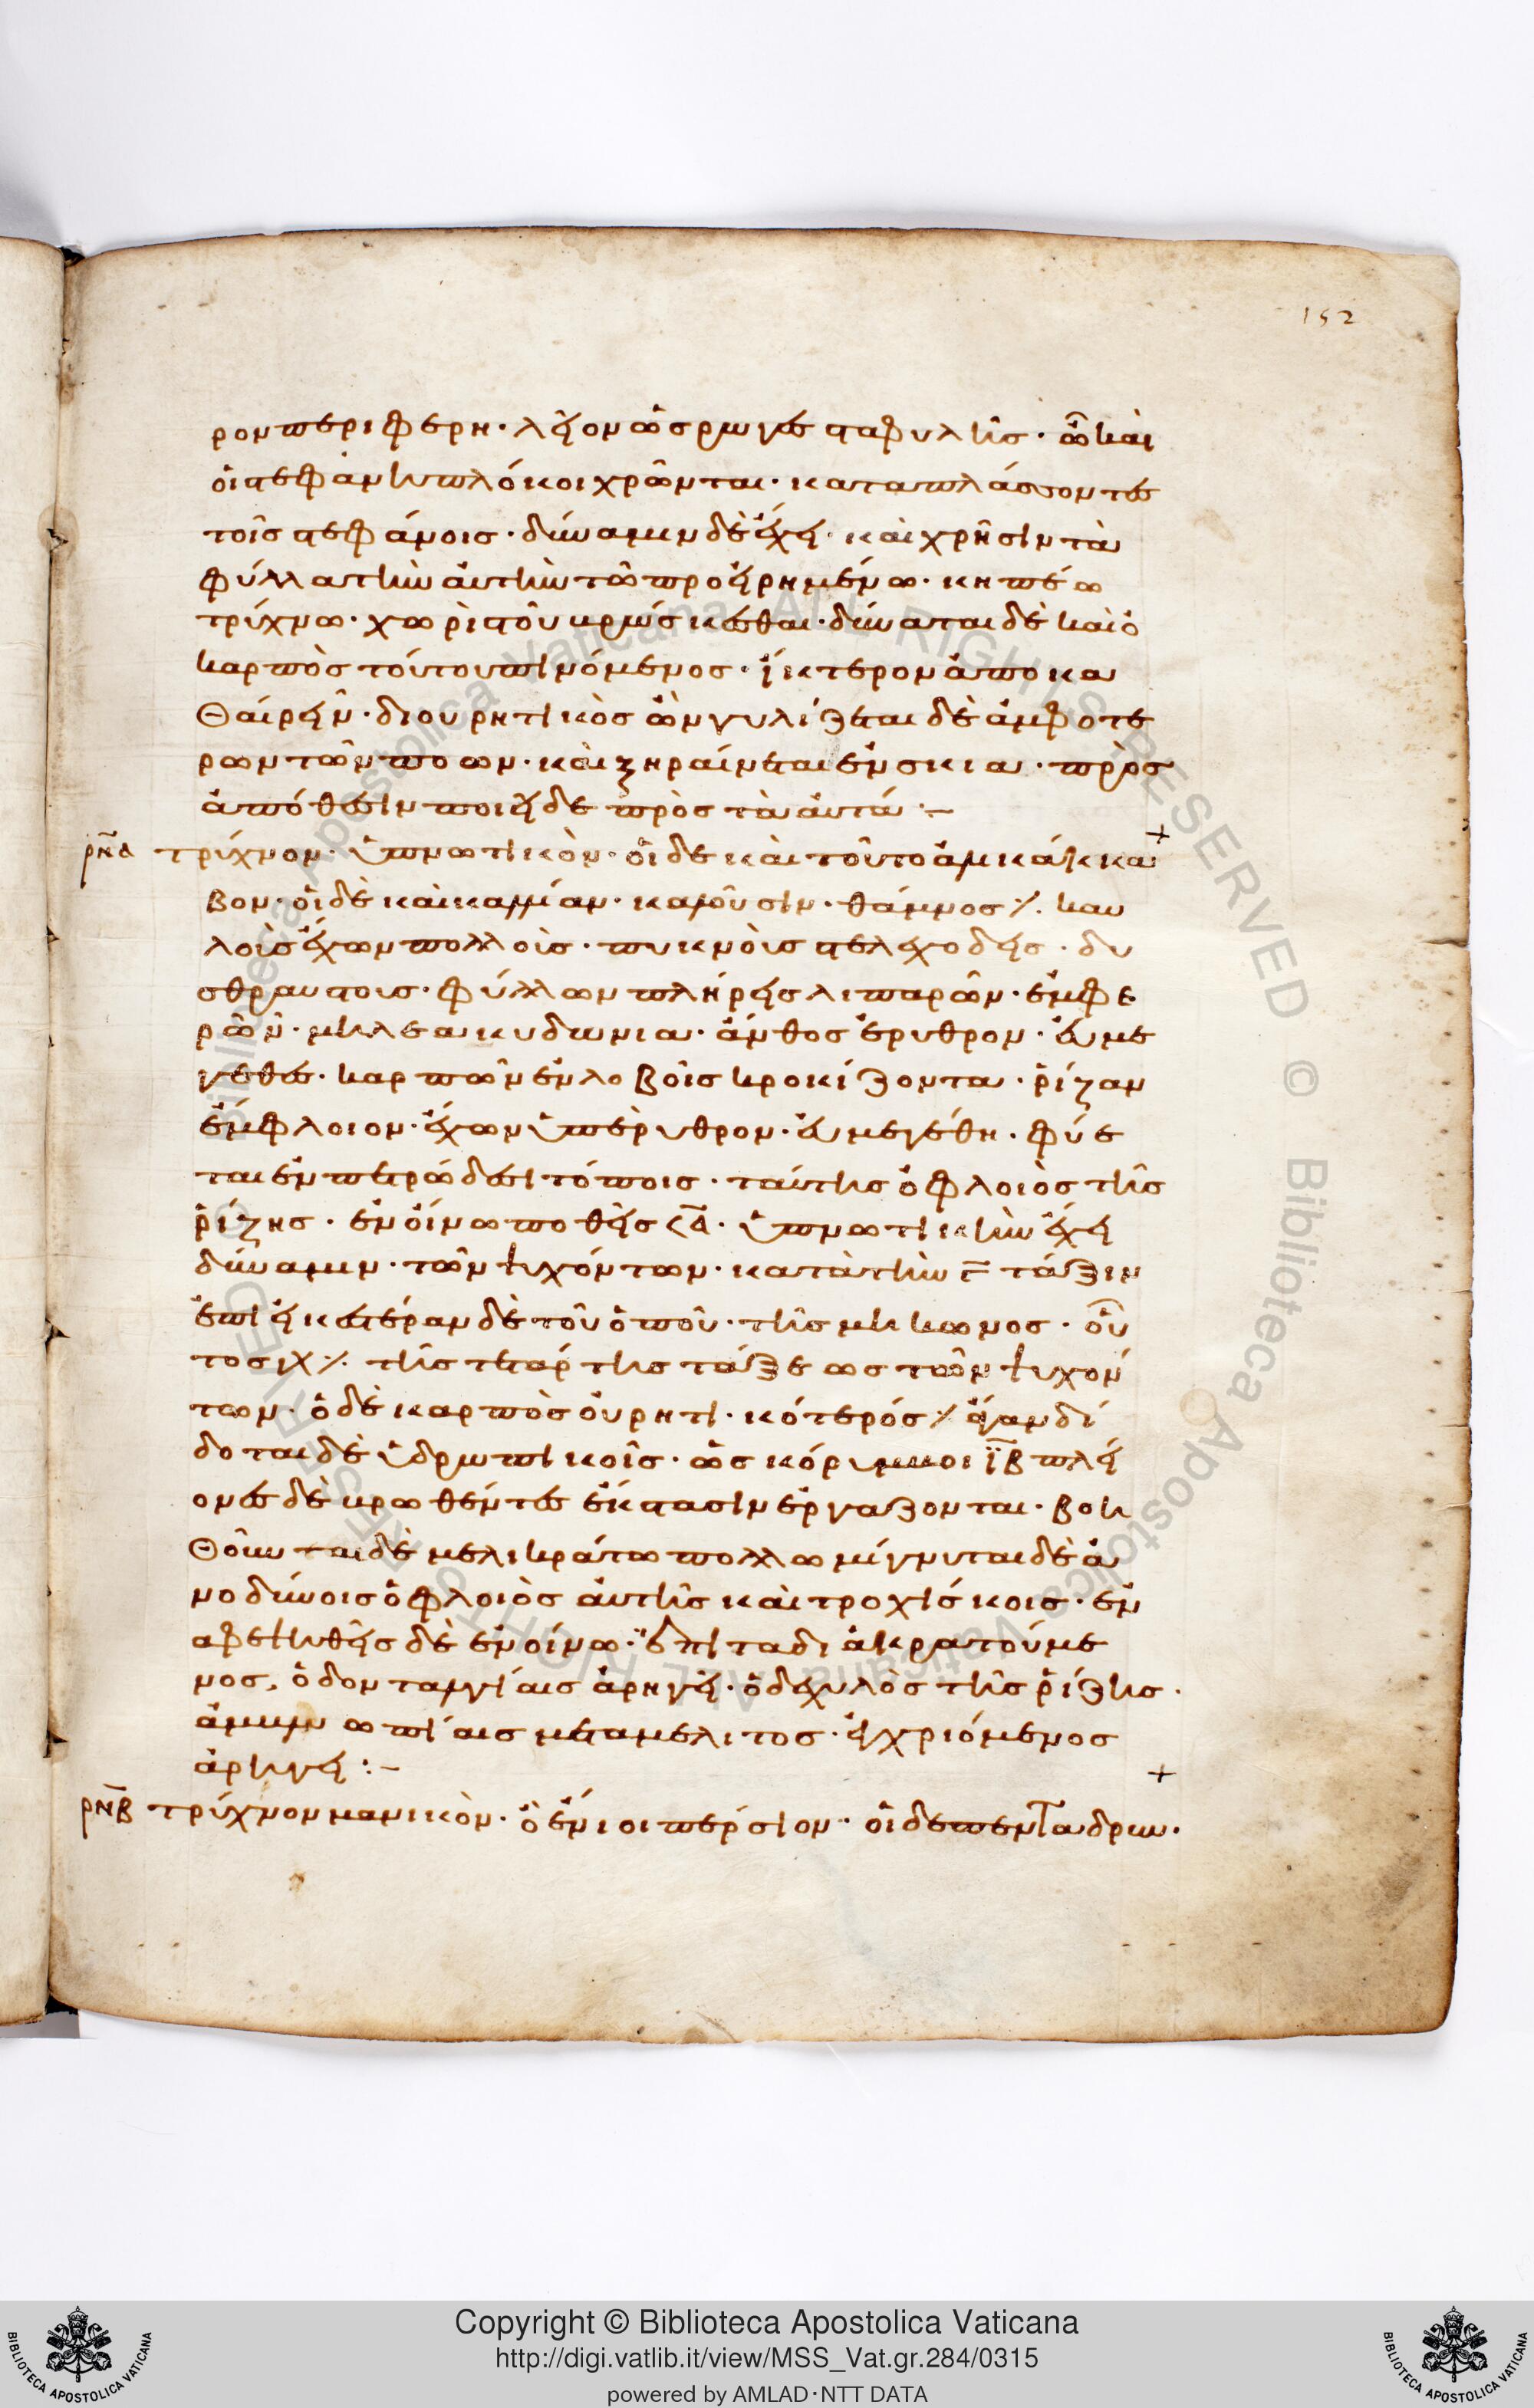 152
ρον περιφερῆ· λεῖον ὡς ρωγὸς σταφυλῆς· ὧ καὶ
οἱ στεφανηπλόκοι χρῶνται· καταπλάσσοντες
τοῖς στεφάνοις· δύναμιν δὲ ἔχει· καὶ χρῆσιν τὰ
φύλλα τὴν ἀυτὴν τῶ προειρημένω· κηπέω
τρύχνω· χωρὶς τοῦ βρώσκεσθαι· δύναται δὲ καὶ ὁ
καρπὸς τούτου πινόμενος· ἴκτερον ἀποκα
θαίρειν· διουρητικὸς ὢν χυλίζεται δὲ ἀμφοτέ
ρων τῶν ποων· καὶ ξηραίνεται ἐν σκια· πρὸς
ἀπόθεσιν ποιεῖ δε πρὸς τὰ ἀυτά :~
ρνα τρύχνον· ὑπνωτικὸν· οἱ δε καὶ τοῦτο ἁλικάκκα
βον· οἱ δὲ καὶ καλλίαν· καλοῦσιν· θάμνος ·/. καυ
λοὶς ἔχων πολλοὶς· πυκνὸις στελεχοδεις· δυ
σθραυστοις· φύλλων πλήρεις λιπαρῶν· ἐμφε
ρῶν· μηλέα κυδωνια· ἄνθος ἐρυθρον· ἐυμε
γεθες· καρπῶν ἐν λοβοῖς κροκίζοντα· ῥίζαν
ἔμφλοιον· ἔχων ὑπέρυθρον· ἐυμεγέθη· φύε
ται ἐν πετρώδεσι τόποις· ταύτης ὁ φλοιὸς τῆς
ῥίζης· ἐν οἴνω ποθεὶς <α· ὑπνωτικὴν ἔχει
δύναμιν· τῶν τυχόντων· κατὰ τὴν γ τάξιν
ἐπιεικεστέραν δὲ τοῦ ὀποῦ· τῆς μήκωνος· οὗ
τος γὰρ ·/. τῆς τετάρτης τάξεως τῶν τυχόν
των· ὁ δὲ καρπὸς οὐρητι·κότερός ·/ ἄγαν δί
δοται δὲ ὑδρωπικοῖς· ὡς κόρυμβοι ιβ πλεί
ονες δὲ βρωθέντες ἔκστασιν ἐργαζονται· βοη
θοῦνται δὲ μελικράτω πολλω μίγνυται δὲ ἀ
νοδύνοις ὁ φλοιὸς ἀυτῆς καὶ τροχίσκοις· ἐν
αφεψηθεὶς δὲ ἐν οἴνω· ἔπιτα διακρατούμε
νος, ὀδονταλγίαις ἀρηγεῖ· ὁ δε χυλὸς τῆς ῥίζης·
ἀμβλυωπίαις μετα μελιτος· ἐγχριόμενος
ἀρήγει :~
ρνβ τρύχνον μανικὸν· ὃ ἔνιοι πέρσιον· οἱ δε πενταδρυν·
Copyright © Biblioteca Apostolica Vaticana
http://digi.vatlib.it/view/MSS_Vat.gr.284/0315
powered by AMLAD·NTT DATA